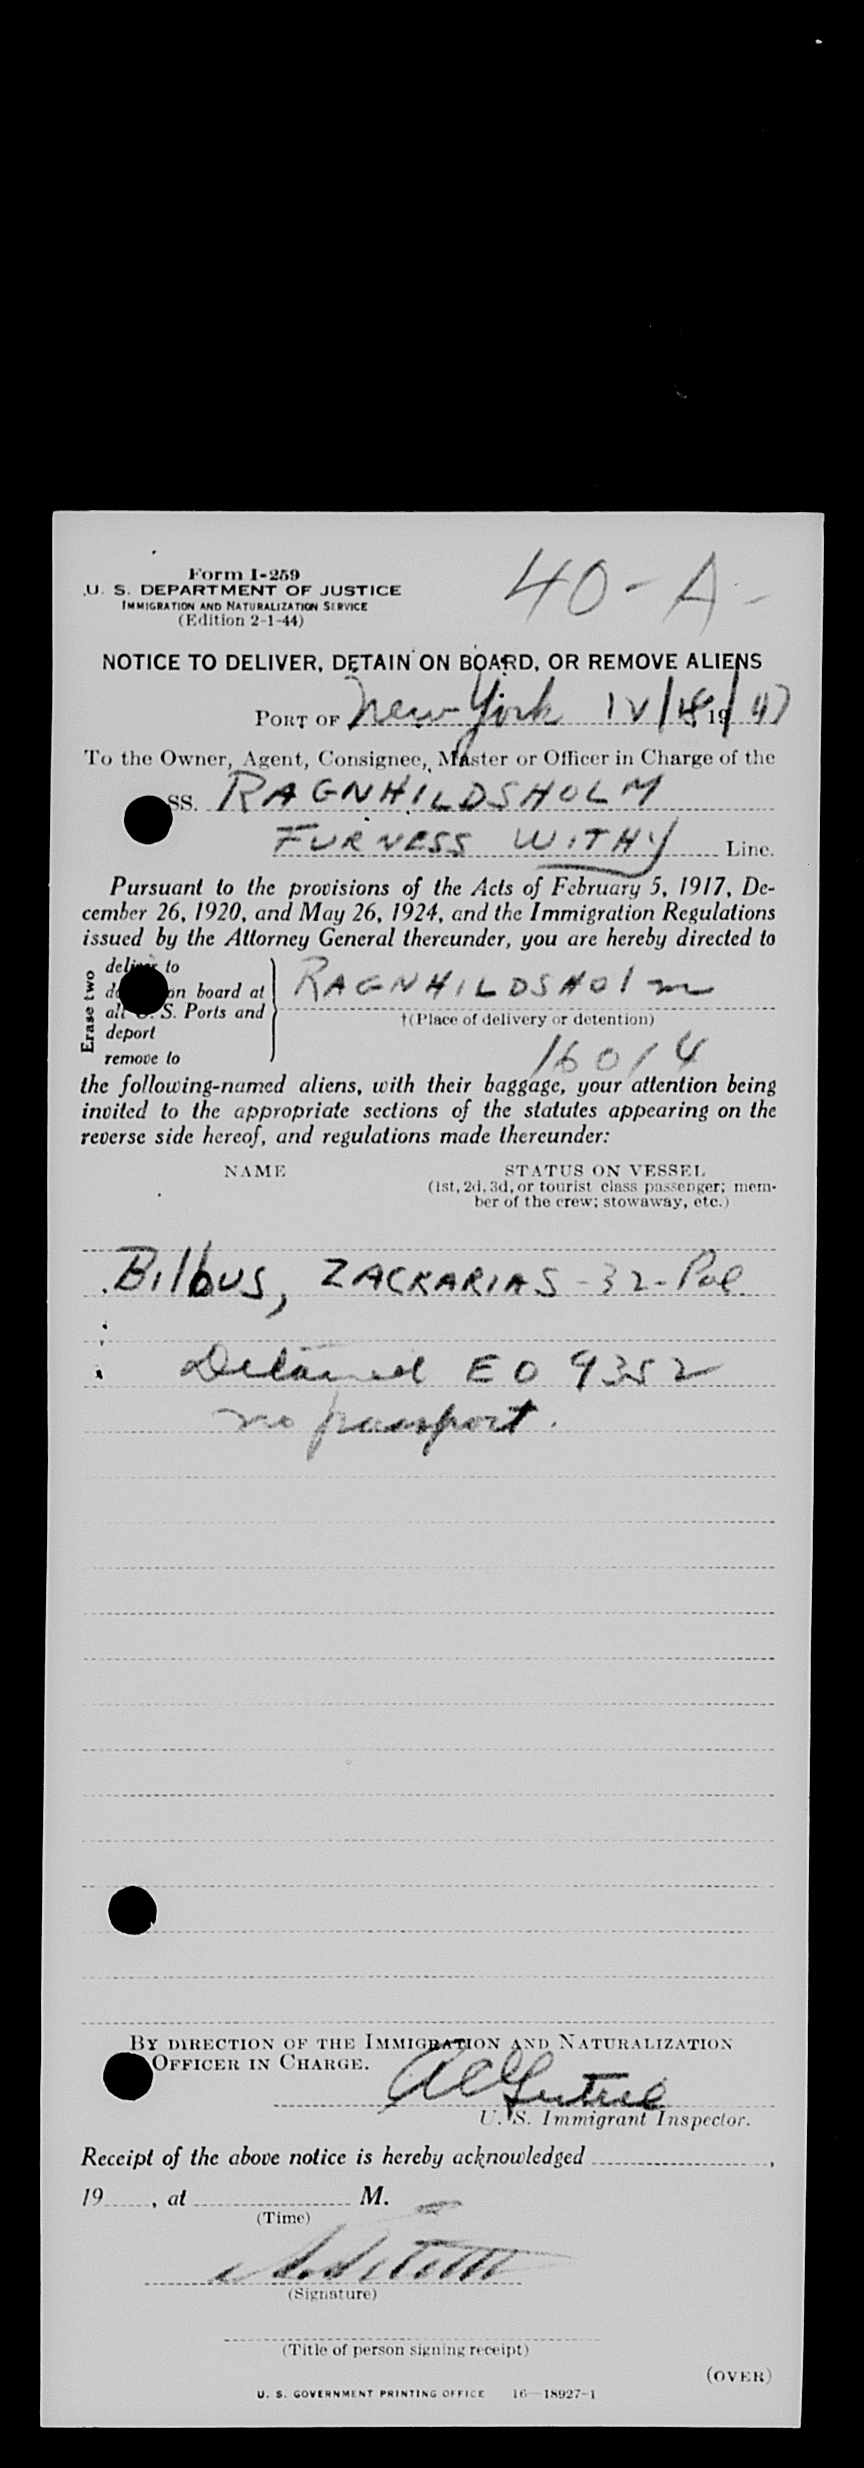 Form I-259
U. S. DEPARTMENT OF JUSTICE
IMMIGRATION AND NATURALIZATION SERVICE
(Edition 2-1-44)
40-A-
NOTICE TO DELIVER, DETAIN ON BOARD, OR REMOVE ALIENS
PORT OF New York 19 47
To the Owner, Agent, Consignee, Master or Officer in Charge of the
SS. RAGNHILDSHOLM
FURNESS WITHY Line.
Pursuant to the provisions of the Acts of February 5, 1917, De-
cember 26, 1920, and May 26, 1924, and the Immigration Regulations
issued by the Attorney General thereunder, you are hereby directed to
Erase two
deliver to
on board at
all U. S. Ports and
deport
remove to
RAGNHILDSHOlm
†(Place of delivery or detention)
16014
the following-named aliens, with their baggage, your attention being
invited to the appropriate sections of the statutes appearing on the
reverse side hereof, and regulations made thereunder:
NAME STATUS ON VESSEL
(1st, 2d, 3d, or tourist class passenger; mem-
ber of the crew; stowaway, etc.)
BilbUS, ZACKARIAS - 32 - Pol
Detained EO 9352
no passport.
BY DIRECTION OF THE IMMIGRATION AND NATURALIZATION
OFFICER IN CHARGE.
U. S. Immigrant Inspector.
Receipt of the above notice is hereby acknowledged ,
19 , at M.
(Time)
(Signature)
(Title of person signing receipt)
(OVER)
U. S. GOVERNMENT PRINTING OFFICE 16—18927-1